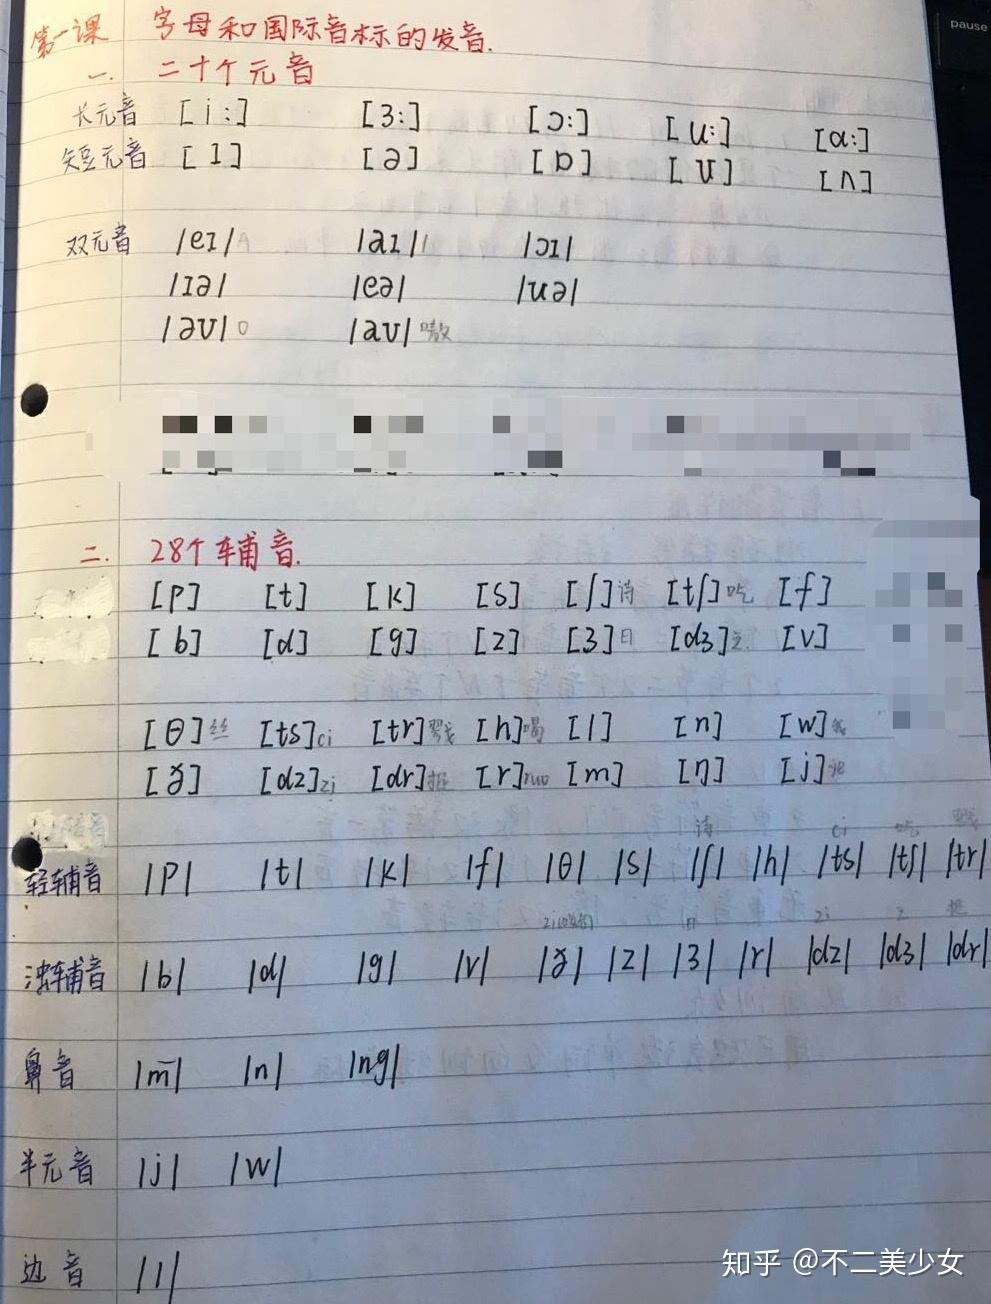 pause
第一课 字母和国际音标的发音.
一. 二十个元音
长元音 [i:] [3:] [ɔ:] [u:] [ɑ:]
短元音 [I] [ə] [ɒ] [ʊ] [ʌ]
双元音 /eɪ/ A /aɪ/ I /ɔɪ/
/ɪə/ /eə/ /uə/
/əʊ/ O /aʊ/ 嗷
二. 28个辅音.
[p] [t] [k] [s] [ʃ]诗 [tʃ]吃 [f]
[b] [d] [g] [z] [ʒ]日 [dʒ] [v]
[θ]丝 [ts]ci [tr]戳 [h]喝 [l] [n] [w]
[ð] [dz]zi [dr] [r]ruo [m] [ŋ] [j]
诗 ci 吃 戳
轻辅音 /p/ /t/ /k/ /f/ /θ/ /s/ /ʃ/ /h/ /ts/ /tʃ/ /tr/
日 zi
浊辅音 /b/ /d/ /g/ /v/ /ð/ /z/ /ʒ/ /r/ /dz/ /dʒ/ /dr/
鼻音 /m/ /n/ /ng/
半元音 /j/ /w/
边音 /l/
知乎 @不二美少女